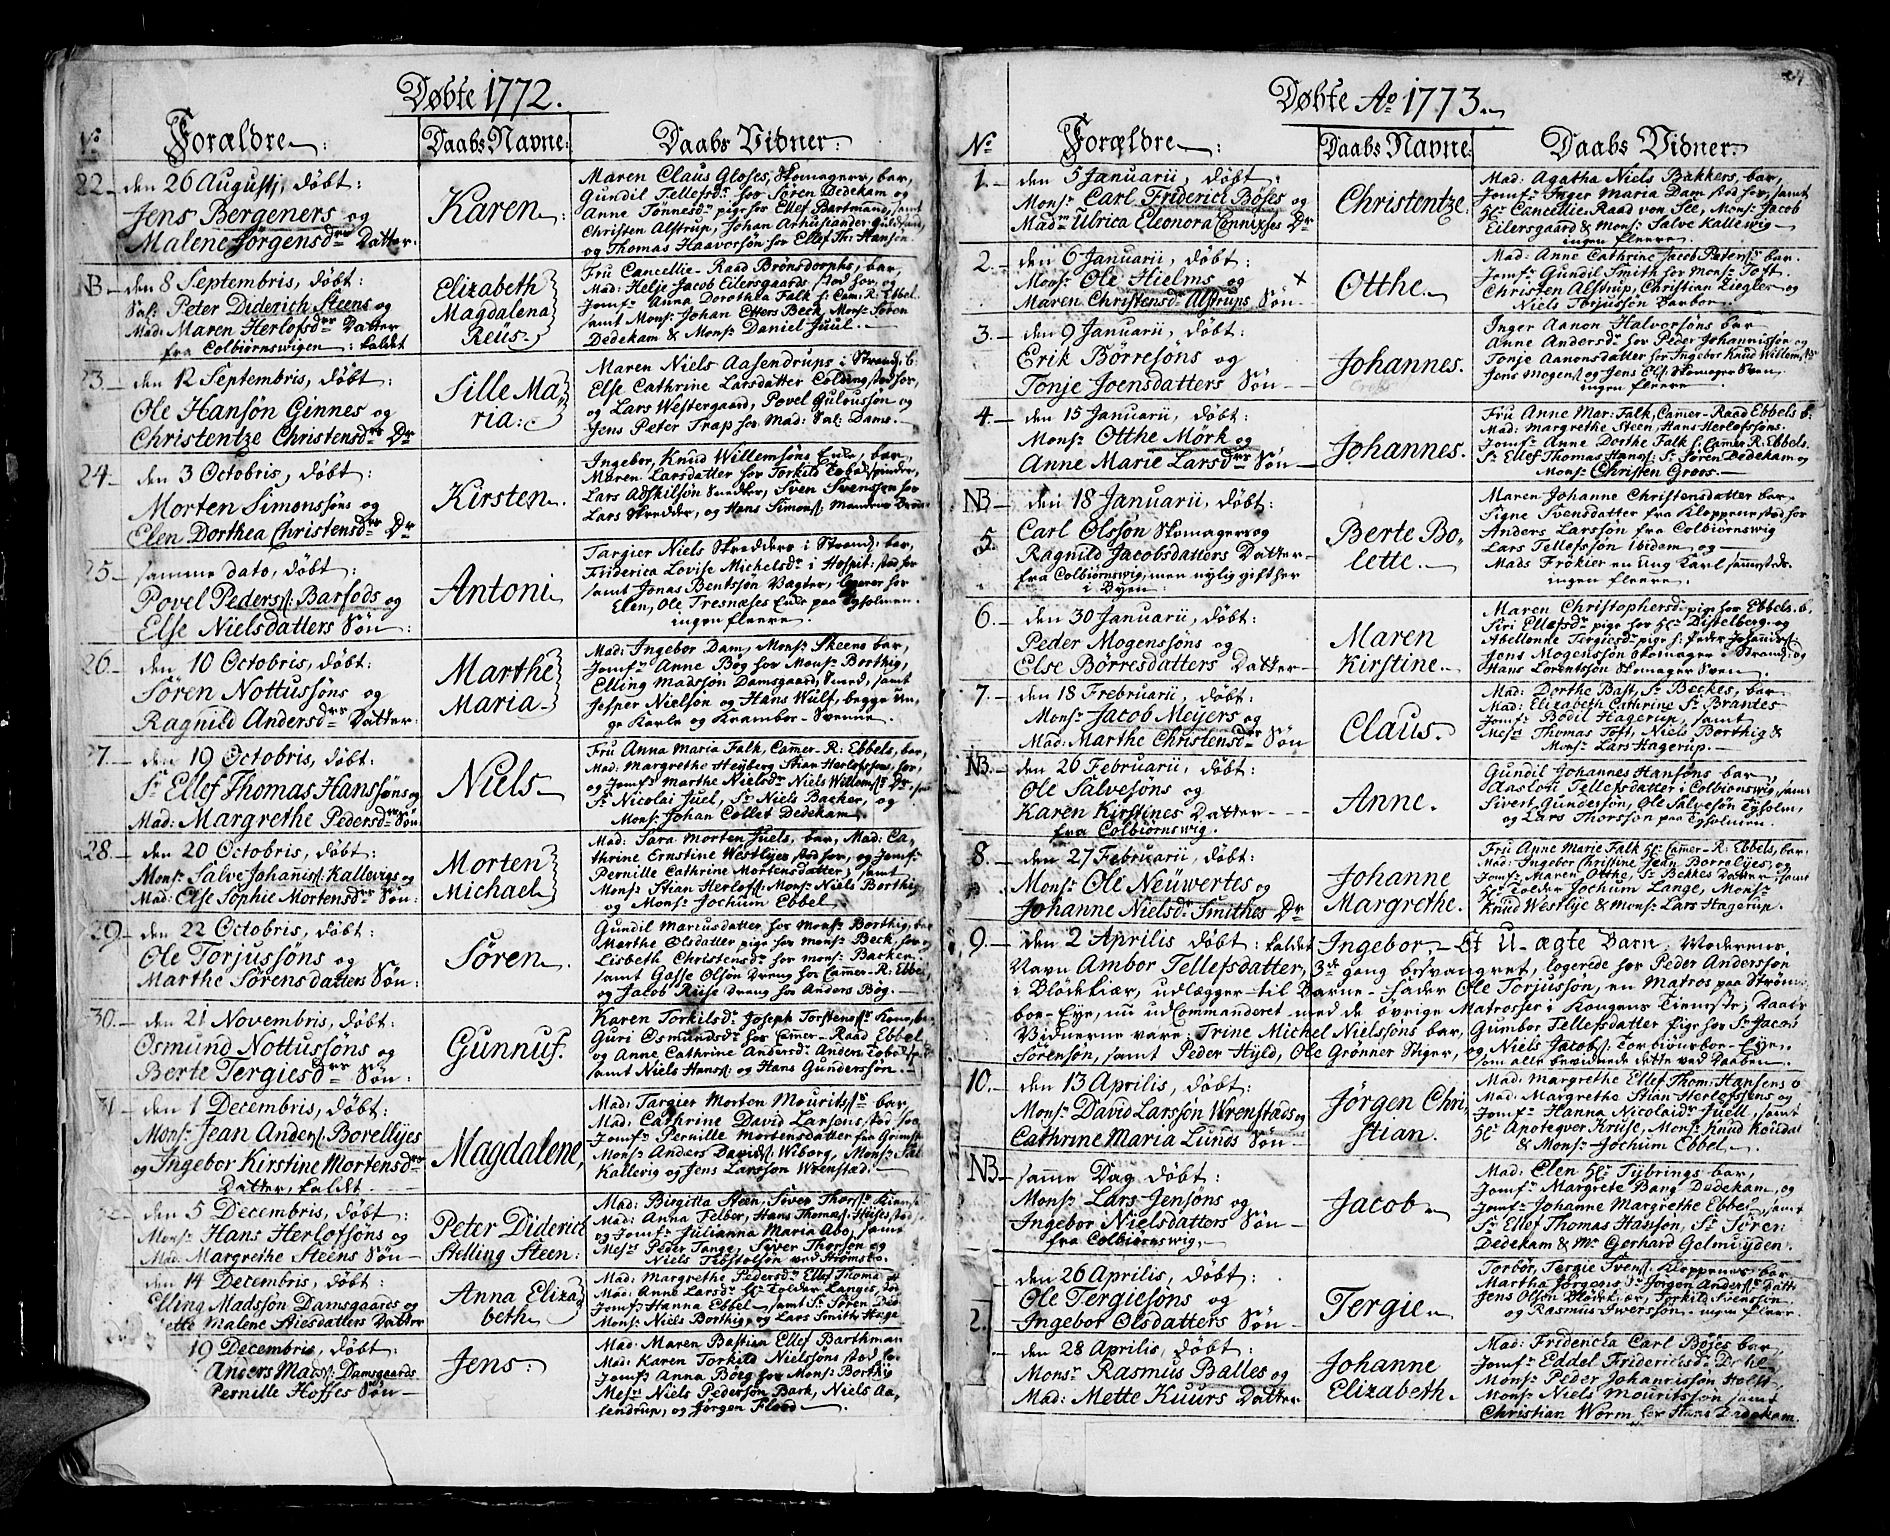 Døbte 1772.
No Forældre: Daabs Navne: Daabs Vidner:
22. den 26 Augusti, døbt:
Jens Bergeners og
Malene Jørgensdr Datter:
Karen.
Maren Claus Gloses, Skomagers, bar,
Gundil Tellefsdr hos Søren Dedekam og
Anne Tønnesdr pige hos Ellef Bartmand, samt
Christen Alstrup, Johan Arhusiander Guldsmd,
og Thomas Haaversøn hos Ellef Th: Hansøn
NB. den 8 Septembris, døbt:
Sal: Peter Diderich Steens og
Mad: Maren Herlofsdrs Datter
fra Colbiørnswigen: kaldet
Elizabeth
Magdalena
Reüs.
Fru Cancellie-Raad Brønsdorphs, bar,
Mad: Helje Jacob Eilersgaards stod hos, og
Jomf: Anna Dorothea Falk h: Cam: R: Ebbel
samt Mons: Johan Etters Beck, Mons: Søren
Dedekam & Mons: Daniel Juul.
23. den 12 Septembris, døbt:
Ole Hansøn Ginnes og
Christentze Christensdrs Dr
Sille Ma
ria:
Maren Niels Aasendrups i Strand: b:
Else Cathrine Larsdatter Colding stod hos,
og Lars Westergaard, Povel Gulvusson og
Jens Peter Trap hos Mad: Sal: Dams.
24. den 3 Octobris, døbt:
Morten Simonssøns og
Elen Dorthea Christensdrs Dr
Kirsten.
Ingebor, Knud Willemsøns Enke, bar,
Maren Larsdatter hos Torkild Tobakspinder,
Lars Adskilsøn Smedker, Sven Svenssen hos
Lars Skredder, og Hans Simons:
25. samme dato, døbt:
Povel Peders: Barfods og
Else Nielsdatters Søn:
Antoni
Targier Niels Skredders i Strand: bar,
Friderica Lovise Michelsdr i Hospit: stod hos
samt Jonas Bentsøn Vagter, logerer hos
Elen, Ole Fresnæses Enke paa Tyholmen.
ingen fleere.
26. den 10 Octobris, døbt:
Søren Nottussøns og
Ragnild Andersdrs Datter:
Marthe
Maria
Mad: Ingebor Dam, Mons: Skeens bar,
Jomf: Anne Bøg hos Mons: Borthig,
Elling Madssøn Damsgaard, Svend, samt
Jesper Nielsøn og Hans Wulf, begge un
ge Karle og Krambor-Svenne.
27. den 19 Octobris, døbt:
Sr Ellef Thomas Hanssøns og
Mad: Margrethe Pedersdrs Søn
Niels
Fru Anna Maria Falk, Camer-R: Ebbels, bar,
Mad: Margrethe Heyberg Stian Herlofsson, hos,
og Jomf: Marthe Nielsdr Niels Willems: Dr
Sr Nicolai Juel, Sr Niels Backer, og
Mons: Johan Collet Dedekam.
28. den 20 Octobris, døbt:
Mons: Salve Johanis: Kallevigs og
Mad: Else Sophie Mortensdrs Søn:
Morten
Michael
Mad: Sara Morten Juels, bar, Mad: Ca,
thrine Ernstine Westlyes stod hos, og Jomf:
Pernille Cathrine Mortensdatter; samt
Mons: Stian Herlofs: Mons: Niels Borthig
og Mons: Jochum Ebbel
29. den 22 Octobris, døbt:
Ole Torjussøns og
Marthe Sørensdatters Søn:
Søren.
Gundil Marcusdatter hos Mons: Borthig, bar
Marthe Olsdatter pige hos Mons: Beck, hos
Lisbeth Christensdr hos Mons: Backer
samt Gasse Olsøn Dreng hos Camer-R: Ebbe
og Jacob Riise Dreng hos Anders Bøg.
30. den 21 Novembris, døbt:
Osmund Nottussøns og
Berte Tergiesdrs Søn:
Gunnuf.
Karen Torkilsdr Joseph Torstensøns Kone,
Guri Osmundsdr hos Camer-Raad Ebbel
og Anne Cathrine Andersdr Anders
samt Niels Hans: og Hans Gunderssøn.
31. den 1 Decembris, døbt:
Mons: Jean Anders: Borellyes
og Ingebor Kirstine Mortensdrs
Datter, kaldet
Magdalene,
Mad: Targier Morten Mourits: bar
Mad: Cathrine David Larsens, stod hos
Jomf: Pernille Mortensdatter fra Grims
Mons: Anders Davids: Wiborg, Mons: Sal
Kallevig og Jens Larssøn Wrenstad.
den 5 Decembris, døbt:
Mons: Hans Herlofsøns og
Mad: Margrethe Steens Søn
Peter Diderich
Stelling Steen:
Mad: Birgitta Steen, Siver Thors:
Mad: Anna Felber, Hans Thomas: Huses, stod
og Jomf: Julianna Maria Abo, samt
Mesrs Peder Tange, Siver Thorsøn og
Niels Tibstolsøn ved Strømsbo.
den 14 Decembris, døbt:
Elling Madssøn Damsgaards og
Mette Malene Stiesdatters Datter
Anna Eliza
beth
Mad: Margrethe Pedersdr Ellef Thoma
Mad: Anne Larsdr Hr Tolder Langes, stod
Jomf: Hanna Ebbel samt Sr Søren Ded
Mons: Niels Borthig, og Lars Smith Hage
19 Decembris, døbt:
Anders Mads: Damsgaards
Pernille Hoffes Søn
Jens:
Mad: Maren Bastian Ellef Barthman
Mad: Karen Torkild Nielssøns stod ho
Jomf: Anna Bøeg hos Mons: Borthig
Mesrs Niels Pedersøn Bark, Niels Aa,
sendrup, og Jørgen Flood.
Døbte Ao 1773.
No Forældre: Daabs Navne: Daabs Vidner:
1. den 5 Januarii, døbt:
Mons: Carl Friderici Bøses og
Madm Ulrica Eleonora Connixses Dr
Christentze.
Mad: Agatha Niels Bakkers, bar,
Jomf: Inger Maria Dam stod hos, samt
Hr Cancellie-Raad von See, Mons: Jacob
Eilersgaard & Mons: Salve Kallewig
ingen fleere.
2. den 6 Januarii, døbt:
Mons: Ole Hielms og
Maren Christensdr Alstrups Søn
Otthe.
Mad: Anne Cathrine Jacob Peters: bar.
Jomf: Gundil Smith hos Mons: Toft.
Christen Alstrup, Christian Ziegler og
Niels Torjussøn Barber.
3. den 9 Januarii, døbt:
Erik Børresøns og
Tonje Joensdatters Søn
Johannes.
Inger Aanon Halvorsøns bar
Anne Andersdr hos Peder Johannissøn og
Tonje Aanonsdatter hos Ingebor Knud Willems
Jens Mogens: og Jens Ols: Skomager Sven
ingen fleere.
4. den 15 Januarii, døbt:
Mons: Otthe Mørk og
Anne Marie Larsdrs Søn
Johannes.
Fru Anne Mar: Falk, Camer-Raad Ebbels b.
Mad: Margrethe Steen, Hans Herlofsøns.
Jomf: Anne Dorthe Falk h: Camer R: Ebbels.
Sr Ellef Thomas Hans: Sr Søren Dedekam og
Mons: Christen Groos.
NB. den 18 Januarii, døbt:
5. Carl Olssøn Skomagers og
Ragnild Jacobsdatters Datter
fra Colbiørnswig, men nylig gift her
i Byen:
Berte Bo,
lette.
Maren Johanne Christensdatter bar,
Signe Svensdatter fra Kloppene stod hos
Anders Larssøn fra Colbiørnswig
Lars Tellefssøn ibidem og
Mads Frökier en ung Karl sammested:
ingen fleere.
6. den 30 Januarii, døbt:
Peder Mogenssøns og
Else Børresdatters Datter
Maren
Kirstine.
Maren Christophersd pige hos Ebbels. b.
Siri Ellefsdr pige hos Hr Distelberg og
Abellonne Tergiesdr pige h: Peder Johannes:
Jens Mogenssøn Skomager i Strand: og
Hans Lorentssøn Skomager Sven.
7. den 18 Februarii, døbt:
Mons: Jacob Meyers og
Mad: Marthe Christensdrs Søn
Claus.
Mad: Dorthe Bast, Sr Beckes, bar
Mad: Elizabeth Cathrine Sr Brantes
Jomf: Bodil Hagerup, samt
Mesrs Thomas Toft, Niels Borthig &
Mons: Lars Hagerup.
NB. den 26 Februarii, døbt:
Ole Salvesøns og
Karen Kirstines Datter
fra Colbiørnswig.
Anne.
Gundil Johannes Hansøns bar
Aaslou Tellefsdatter i Colbiornswig, samt
Sivert Gundersøn, Ole Salvesøn Tyholm,
og Lars Thorssøn paa Tyholmen.
8. den 27 Februarii, døbt:
Mons: Ole Neüwertes og
Johanne Nielsdr Smithes Dr
Johanne
Margrethe.
Fru Anne Marie Falk Hr Camer-R: Ebbels, bar.
Mad: Ingebor Christine Jean Borrelyes, og
Jomf: Maren Otthe, Sr Bekkes Datter, samt
Hr Tolder Jochum Lange, Mons:
Knud Westlye & Mons: Lars Hagerup.
9. den 2 Aprilis døbt: kaldet Ingebor. Et U-ægte Barn; Moderens
Navn Ambor Tellefsdatter, 3de gang besvangret, logerede hos Peder Anderssøn
i Blödekiær, udlægger til Barne-fader Ole Torjussøn, en Matros paa Strøms
boe-Eye, nu udCommanderet med de øvrige Matroser i Kongens Tieneste; Daabs
Vidnerne vare: Trine Michel Nielssøns bar, Gumbor Tellefsdatter Pige hos Sr Jacob
Sørensøn, samt Peder Hyld, Ole Grønner Stiger, og Niels Jacobs: Torbiönsboe-Eye,
som alle bevidnede dette ved Daaben.
10. den 13 Aprilis, døbt:
Mons: David Larssøn Wrenstads og
Cathrine Maria Lunds Søn
Jørgen Chri,
stian.
Mad: Margrethe Ellef Thom: Hansens b
Mad: Margrethe Stian Herlofssens og
Jomf: Hanna Nicolaidr Juell, samt
Hr Apoteqver Kruse, Mons: Knud
& Mons: Jochum Ebbel.
NB. samme Dag døbt:
Mons: Lars Jensøns og
Ingebor Nielsdatters Søn
fra Colbiørnswig.
Jacob
Mad: Elen Hr Tybrings bar,
Jomf: Margrete Bang Dedekam, og
Jomf: Johanne Margrethe Ebbel, samt
Sr Ellef Thomas Hanssøn, Sr Søren
Dedekam & Mr Gerhard Gelmuyden.
den 26 Aprilis, døbt:
2. Ole Tergiesøns og
Ingebor Olsdatters Søn
Tergie
Torbor, Tergie Svens: Kloppenes bar
Martha Jørgensdr Jørgen Anders: Datter
Jens Olsøn Blödekiær, Torkild Svenssøn
og Rasmus Iwerssøn. ingen fleere
den 28 Aprilis, døbt:
Mons: Rasmus Balles og
Mad: Mette Kuurs Datter
Johanne
Elizabeth.
Mad: Fridericia Carl Bøses bar,
Jomf: Eddel Fridericisdr
Mons: Peder Johanissøn Holst
Mons: Niels Mouritssøn samt
Christian Worm hos Hans Dedekam.